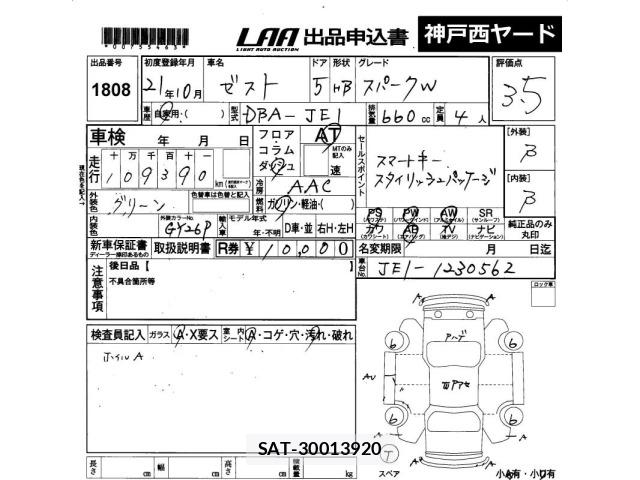 00755463
LAA 出品申込書 神戸西ヤード
LIGHT AUTO AUCTION
出品番号 初度登録年月 車名 ドア 形状 グレード 評価点
1808 21年10月 ゼスト 5 HB スパークW 3.5
車歴 自家用・( ) 型式 DBA-JE1 排気量 660cc 定員 4人
車検 年 月 日 フロア コラム ダッシュ AT MTのみ記入 速
走行 十 万 千 百 十
109390 km
冷房 AAC
燃料 ガソリン・軽油・( )
セールスポイント スマートキー
スタイリッシュパッケージ
[外装] B
[内装] B
外装色 グリーン 色替車は色替と記入
内装色 外装カラーNo. GY26P 輸入車 モデル年式 年・不明 D車・並 右H・左H
PS PW AW SR
(パワステ) (パワーウインド) (アルミホイール) (サンルーフ)
カワ AB TV ナビ
(カワシート) (エアバッグ) (地デジ) (ナビゲーション)
純正品のみ丸印
新車保証書 取扱説明書 R券 ¥10,000
ディーラー捺印あるもの
名変期限 月 日迄
車台No. JE1-1230562
現在色を記入↑
注意事項 後日品【
不具合箇所等
ロック車
検査員記入 ガラス A・X要ス 室内シート A・コゲ・穴・汚れ・破れ
ホイルA
6 6
Pハーゲ
AU
WPアセ
6 6
T
スペア
SAT-30013920
長さ cm 幅 cm 高さ cm 積載量 kg
小A有・小U有